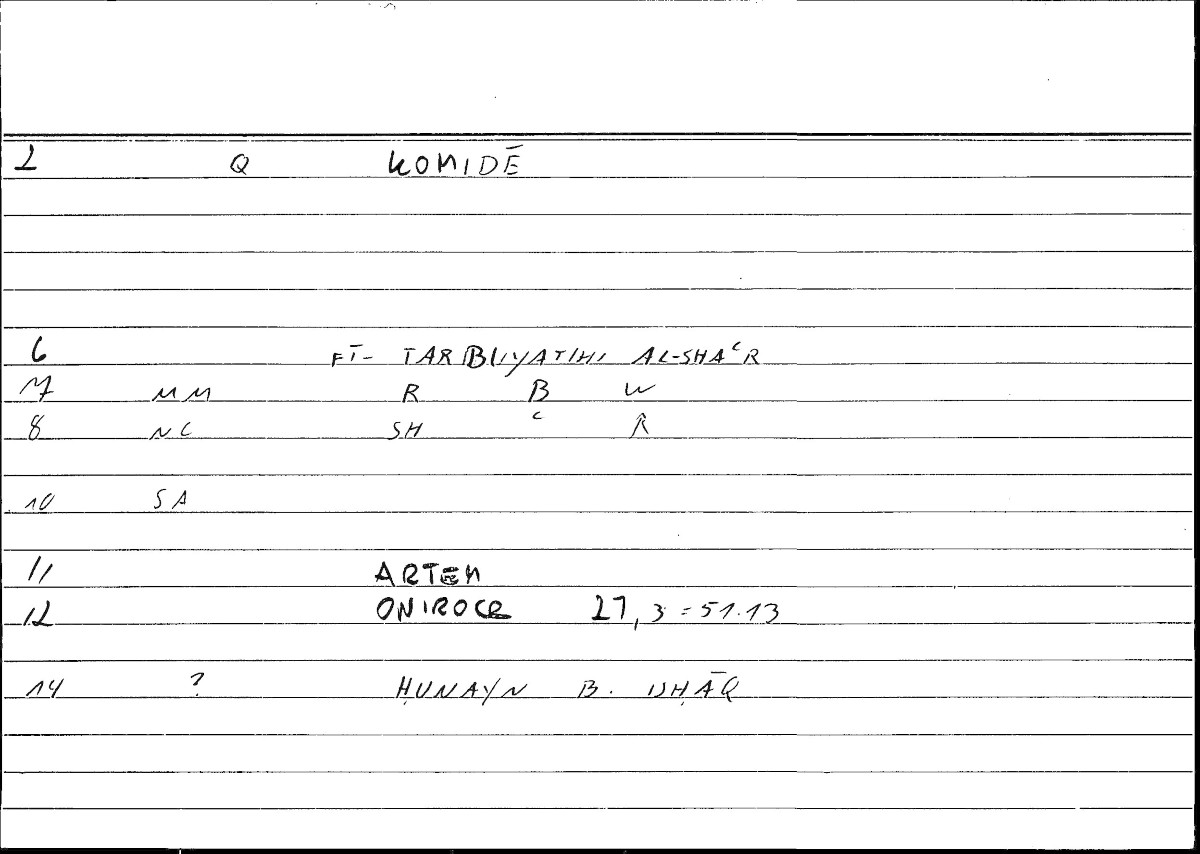 2 Q KOMIDĒ
6 FĪ- TARBIYATIHI AL-SHAʿR
7 MM R B W
8 NC SH ʿ R
10 SA
11 ARTEM
12 ONIROCR 27,3=51.13
14 ? ḤUNAYN B. ISḤĀQ